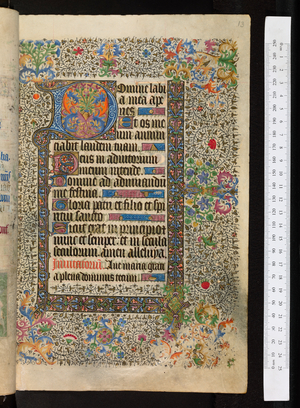 Domine labi
a mea ape
ries
Et os me
um annun
ciabit laudem tuam.
Deus in adiutorium
meum intende.
Domine ad adiuvandu
me festina.
Gloria patri et filio et spi
ritui sancto.
Sicut erat in principio et
nunc et semper. et in secula
seculorum. amen. alleluya.
Ave maria grati
a plena dominus tecum.